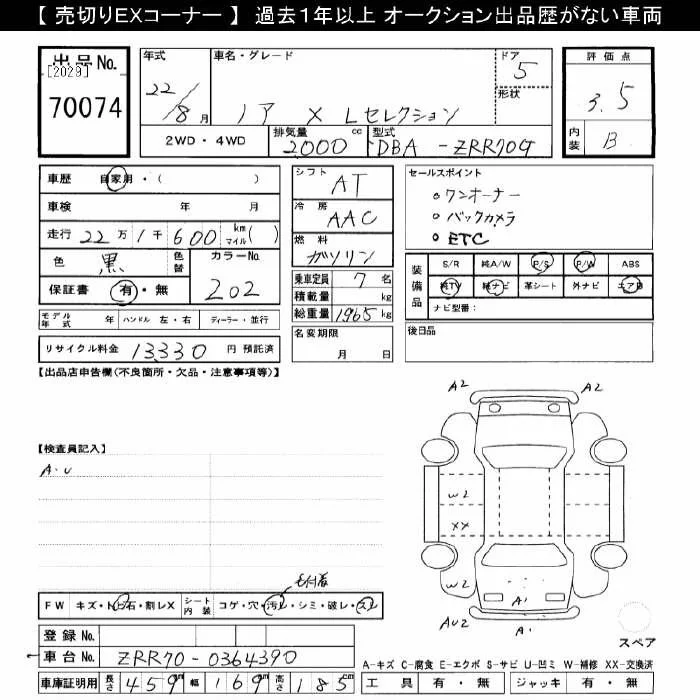 【 売切りEXコーナー 】 過去1年以上 オークション出品歴がない車両
出品No.
[2029]
70074
年式
22/8月
車名・グレード
ノア X Lセレクション
ドア
5
形状
評価点
3.5
内装
B
2WD・4WD
排気量
2000 cc
型式
DBA-ZRR70G
車歴 自家用・( )
車検 年 月
走行 22万1千600 km マイル( )
色 黒 色替
カラーNo.
202
保証書 有・無
シフト
AT
冷房
AAC
燃料
ガソリン
乗車定員 7 名
積載量 kg
総重量 1965 kg
セールスポイント
○ワンオーナー
○バックカメラ
○ETC
装備品
S/R 純A/W P/S P/W ABS
純TV 純ナビ 革シート 外ナビ エアB
ナビ型番:
モデル年式 年 ハンドル 左・右 ディーラー・並行
リサイクル料金 13330 円 預託済
名変期限
月 日
後日品
【出品店申告欄(不良箇所・欠品・注意事項等)】
【検査員記入】
A・U
A2
A2
W2
XX
W2
AU2
A1
A1
スペア
FW キズ・トビ石・割レX シート内装 コゲ・穴・汚レ・シミ・破レ・スレ
登録No.
車台No. ZRR70-0364390
車庫証明用 長さ 459cm 幅 169cm 高さ 185cm
A-キズ C-腐食 E-エクボ S-サビ U-凹ミ W-補修 XX-交換済
工具 有・無 ジャッキ 有・無